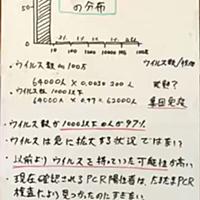 の分布
50
0
10 100 1000 10000 10万 100万
・ウイルス数の100万 ウイルス数/検体
64000人 × 0.0030 200人
・ウイルス数1000以下
64000人 × 0.97 = 62000人 集団免疫
・ウイルス数が1000以下の人が97%
・ウイルスは急に拡大する状況ではない?
・以前よりウイルスを持っていた可能性が高い
・現在確認されるPCR陽性者は、たまたまPCR
検査により見つかったにすぎない